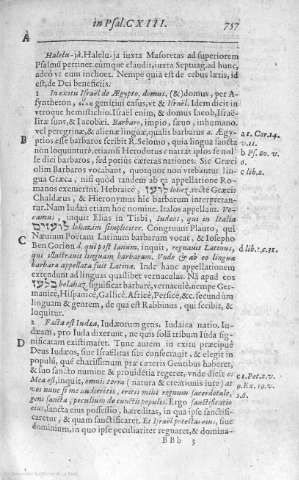 in Psal. CXIII. 757
A
Halelu-jà. Halelu-ja iuxta Masoretas ad superiorem
Psalmũ pertinet eumque claudit, iuxta Septuag. ad hunc,
adeò ut eum inchoet. Nempe quia est de rebus latis, id
est, de Dei beneficiis.
1. In exitu Israël de Ægypto, domus, (&) domus, per A-
syntheton, genitini casus, vt & Israël. Idem dicit in
vtroque hemistichio. Israel enim, & domus Iacob, Israë-
litæ sunt, & Iacobæi. Barbaro, impio, sæuo, inhumano,
vel peregrinæ, & alienæ linguæ, qualis barbarus a. Ægy-
B
ptios esse barbaros scribit R. Selomo, quia lingua sancta
non loquuntur, etiansi Herodotus narrat ipsos no-
le dici barbaros, sed potius cæteras nationes. Sic Græci
olim Barbaros vocabant, quotquot non vtebantur lingua
Græca, nisi quod tandem ab ea appellatione Ro-
manos exemerunt. Hebraicè, לעז recte Chaldæus
Nam Iudæi etiam hoc nomine Italos appellant.
inquit Elias in Tisbi, Iudæi, qui in Italia
לועזים lohazim simpliciter. Congruit Plauto, qui
C
Næuium Poetam Latinum barbarum vocat, & Iosepho
Ben Gorion d. qui post Ianum, inquit, regnauit Latinus,
qui illustrauit linguam barbaram. Vnde & ab eo lingua
barbara appellata fuit Latina. Inde hanc appellationem
extendunt ad linguas quaslibet vernaculas. Nã apud eos
בלעז belahaz significat barbarè, vernaculè, nempe Ger-
manicè, Hispanicè, Gallicè, Africè, Persicè, &c. secundùm
linguam & gentem, de qua est Rabbinus, qui scribit, &
loquitur.
2 Facta est Iudæa, Iudæorum gens. Iudaica natio. Iu-
D
dæam, pro Iuda dixerunt, ne quis solã tribum Iuda sig-
nificatam existimaret. Tunc autem in exitu præcipuè
Deus Iudæos, siue Israëlitas sibi consecrauit, & elegit in
populũ, qué charissimum præ cæteris Gentibus haberet,
& suo sancto numine & prouidentia regeret, vnde dicit e.
Mea est, inquit, omnis terra (natura & creationis iure) at
vos nunc si me audieritis, eritis mihi regnum sacerdotale,
gens sancta, peculium de cunctis populis. Ergo sanctificatio
eius, sancta eius possessio, hæreditas, in qua ipse sanctifi-
caretur, & quam sanctificaret. Et Israël potestas eius, siue
dominium, in quo ipse peculiariter regnaret, & domina-
BBb 3
a 1. Cor. 14.
v. 11.
b Ps. 80. v.
c lib. 2.
d lib. 1. c. 31.